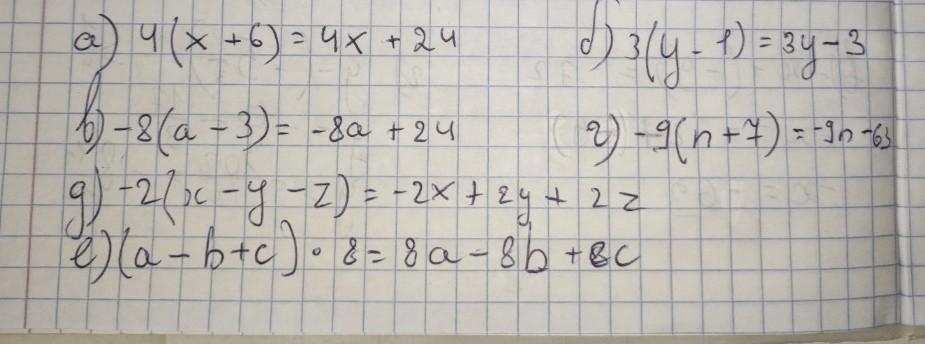 а) 4(x + 6) = 4x + 24 б) 3(y - 1) = 3y - 3
в) -8(a - 3) = -8a + 24 г) -9(n + 7) = -9n - 63
д) -2(x - y - z) = -2x + 2y + 2z
е) (a - b + c) · 8 = 8a - 8b + 8c